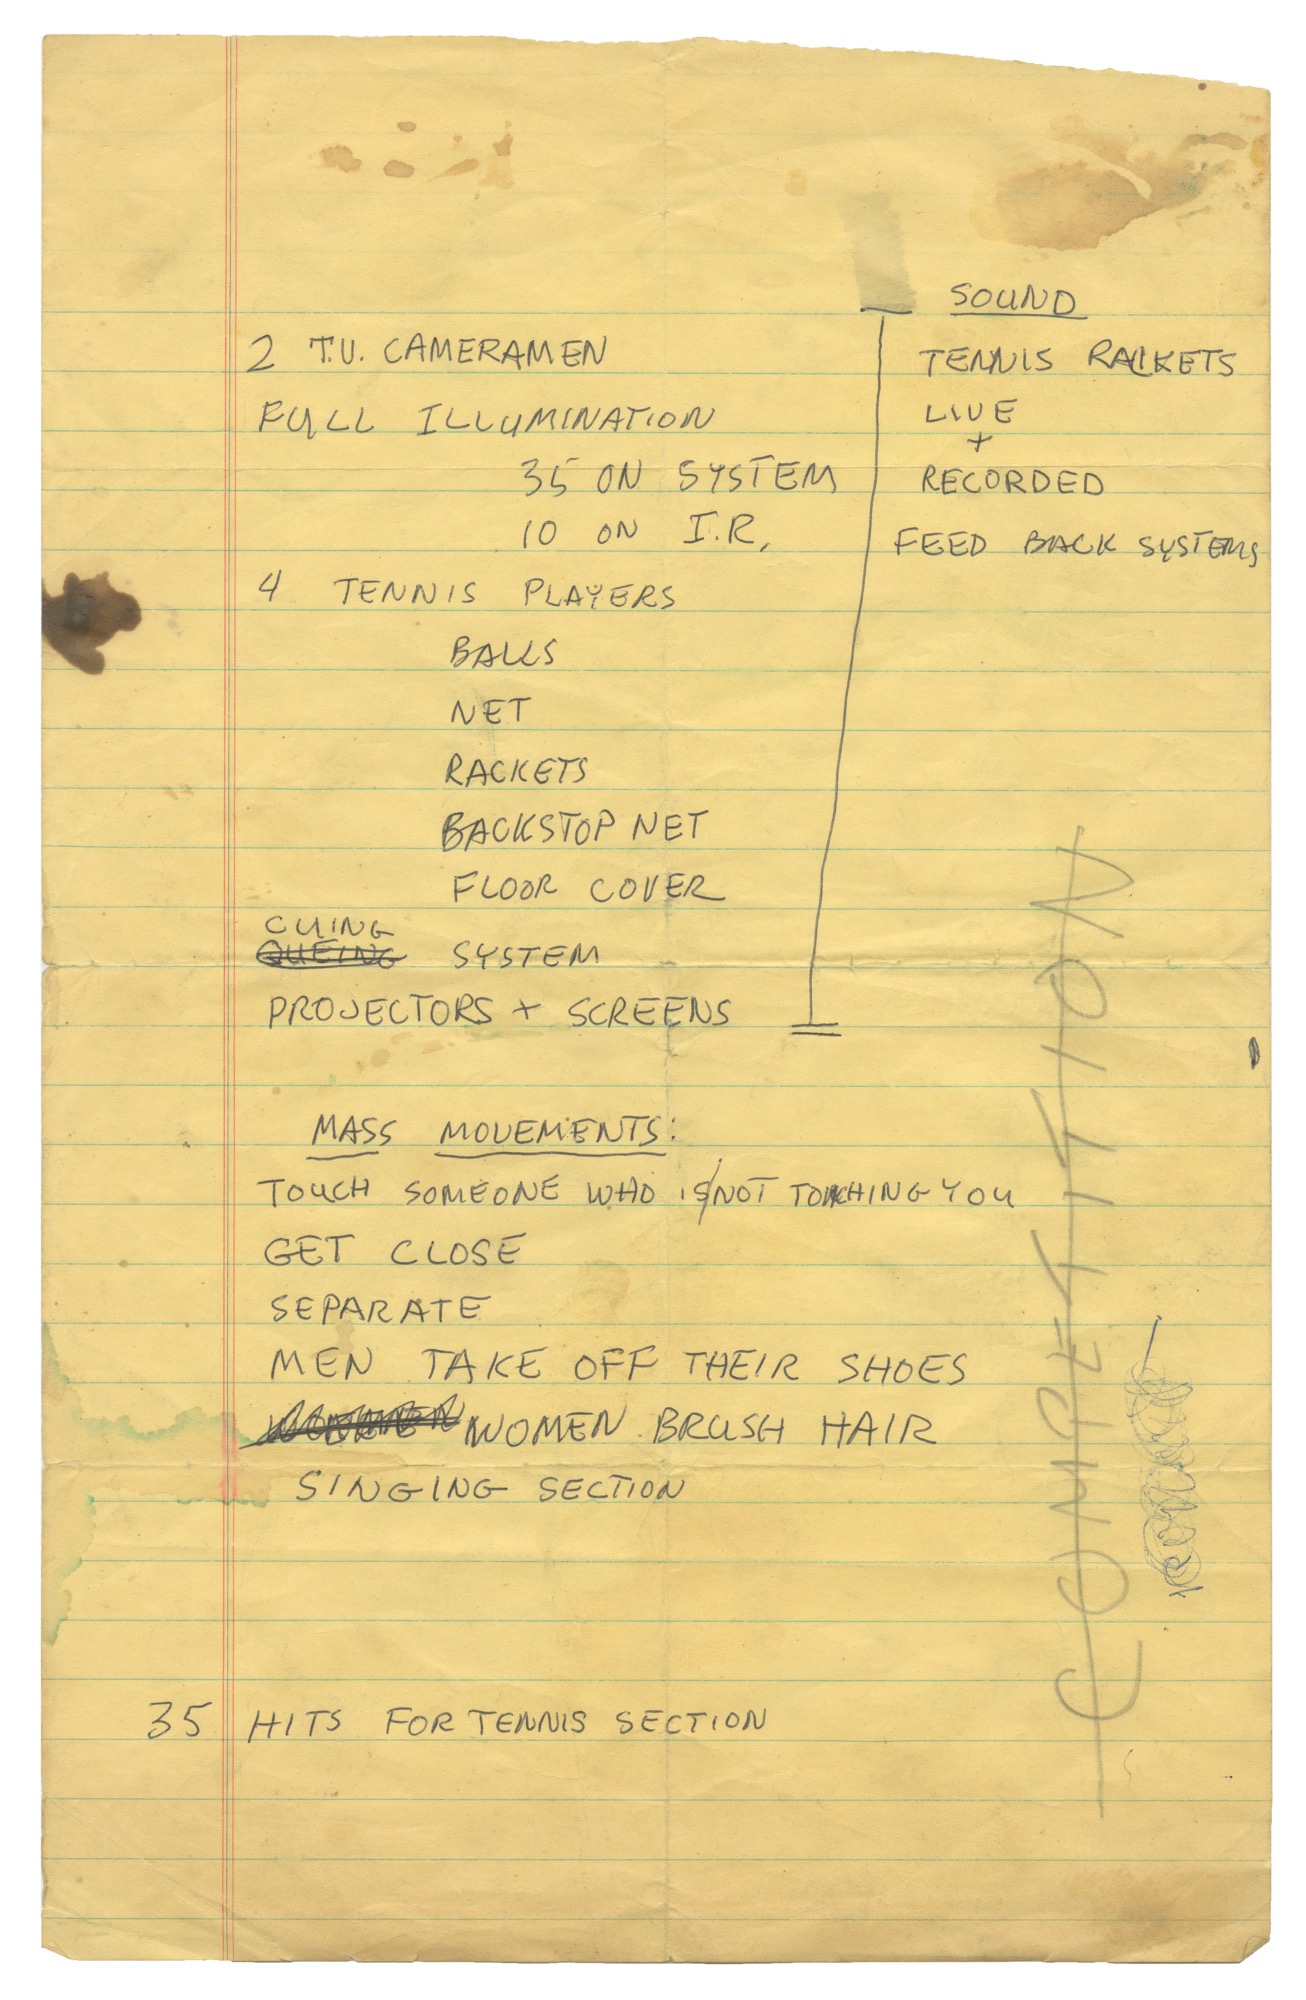 2 T.V. CAMERAMEN
FULL ILLUMINATION
35 ON SYSTEM
10 ON I.R.
4 TENNIS PLAYERS
BALLS
NET
RACKETS
BACKSTOP NET
FLOOR COVER
CUING
QUEING SYSTEM
PROJECTORS + SCREENS
SOUND
TENNIS RACKETS
LIVE
+
RECORDED
FEED BACK SYSTEMS
MASS MOVEMENTS:
TOUCH SOMEONE WHO IS/NOT TOUCHING YOU
GET CLOSE
SEPARATE
MEN TAKE OFF THEIR SHOES
WOMEN BRUSH HAIR
SINGING SECTION
35 HITS FOR TENNIS SECTION
COMPETITION